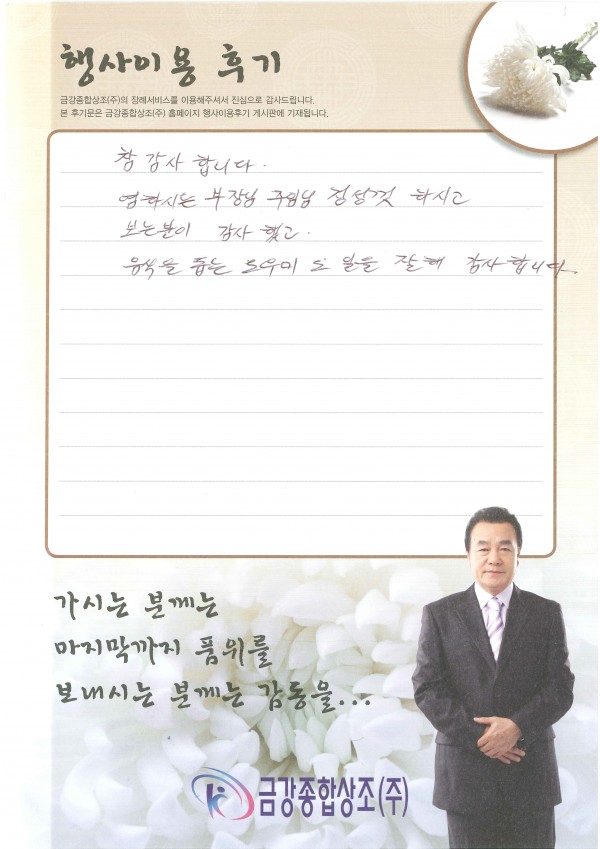 행사이용 후기
금강종합상조(주)의 장례서비스를 이용해주셔서 진심으로 감사드립니다.
본 후기문은 금강종합상조(주) 홈페이지 행사이용후기 게시판에 기재됩니다.
참 감사 합니다.
염하시는 부장님 주임님 정성껏 하시고
보는분이 감사 했고.
음식을 돕는 도우미 도 일을 잘해 감사 합니다.
가시는 분께는
마지막까지 품위를
보내시는 분께는 감동을...
금강종합상조(주)